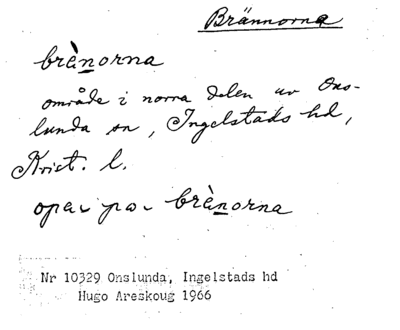 Brännorna
brànorna
område i norra delen av Ons-
lunda sn, Ingelstads hd,
Krist. l.
brànorna
Nr 10329 Onslunda, Ingelstads hd
Hugo Areskoug 1966